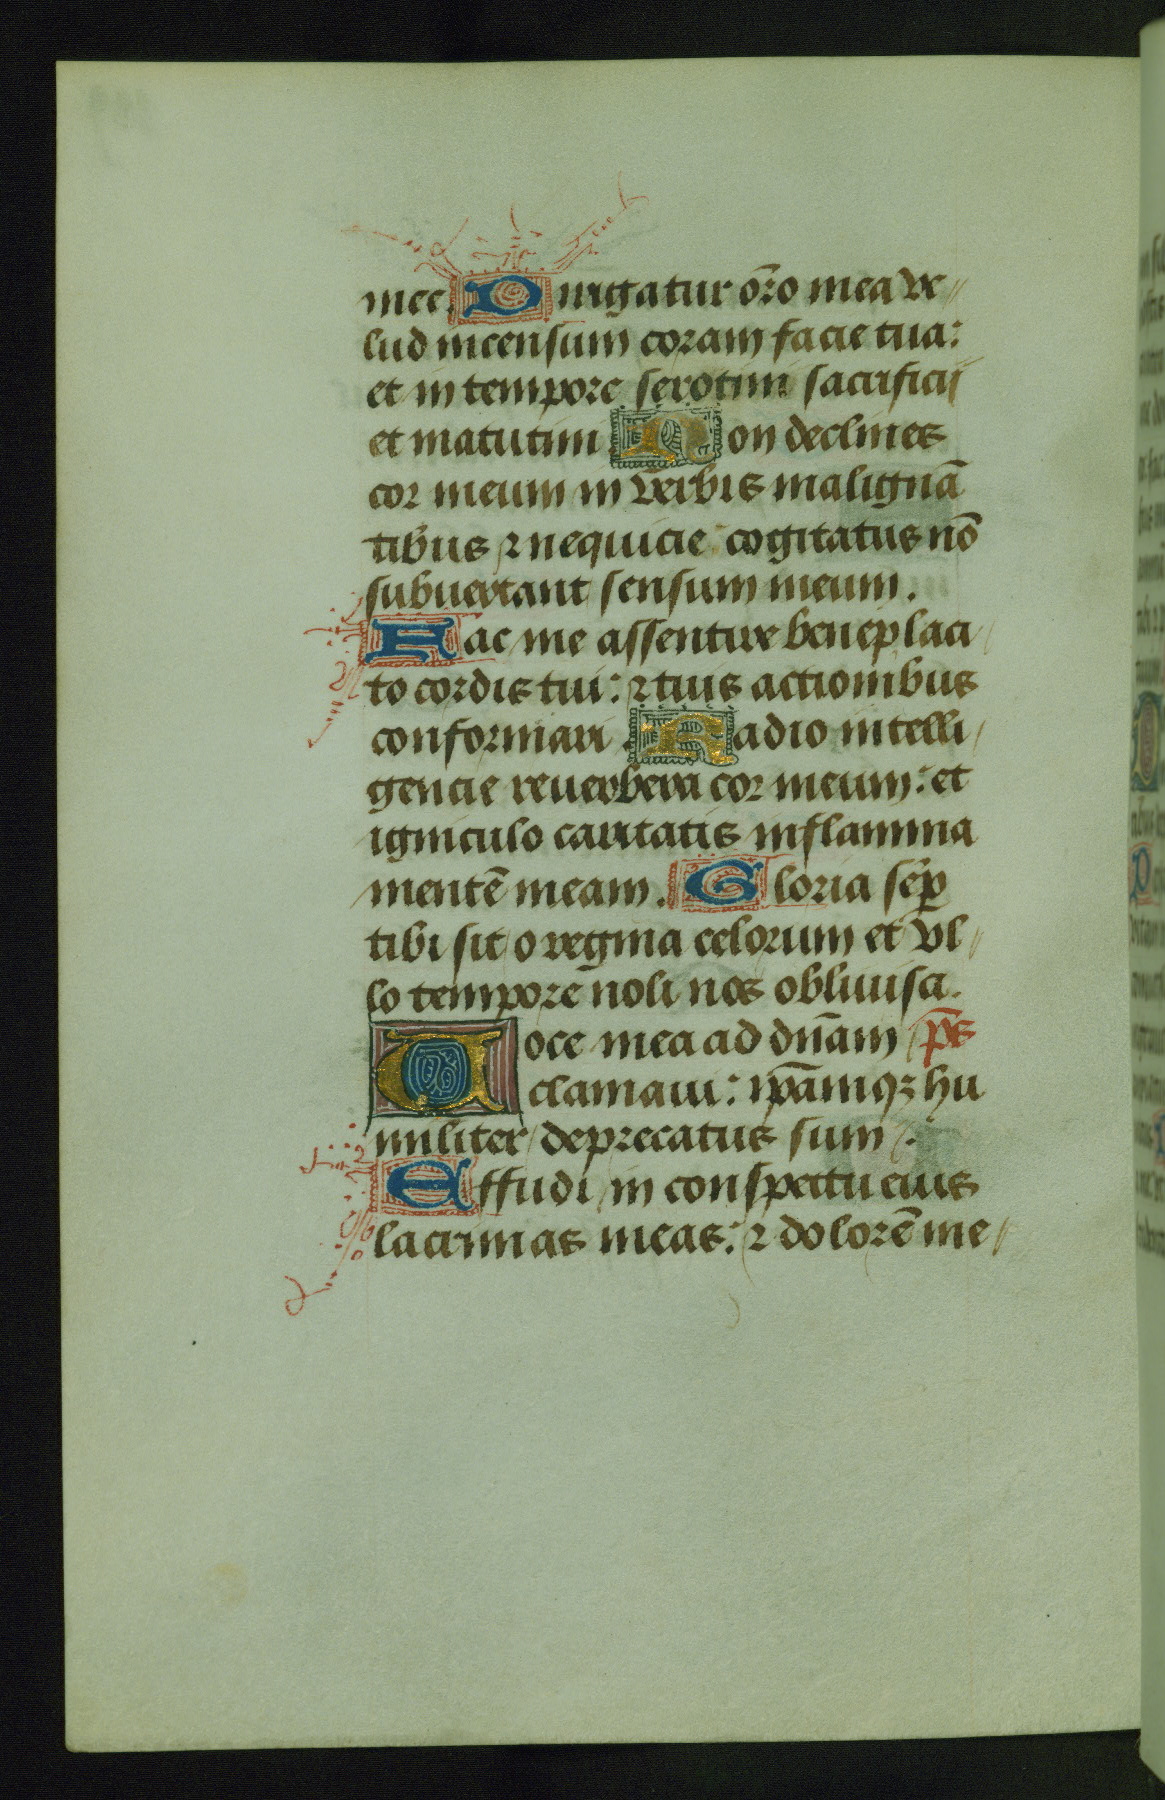 mee. Dirigatur or̄o mea ve//
lud incensum coram facie tua:
et in tempore serotini sacrificij
et matutini. Non declines
cor meum in verbis malignā
tibus ⁊ nequicie cogitatus nō
subuertant sensum meum.
Hac me assentire beneplaci/
to cordis tui: ⁊ tuis actionibus
conformari. Radio intelli/
gencie reuerbera cor meum: et
igniculo caritatis inflamma
mentē meam. Gloria sēp
tibi sit o regina celorum et vl//
lo tempore noli nos obliuisci.
Uoce mea ad dn̄am p̄s
clamaui: ip̄amqꝫ hu
militer deprecatus sum.
Effudi in conspectu eius
lacrimas meas: ⁊ dolorē me//